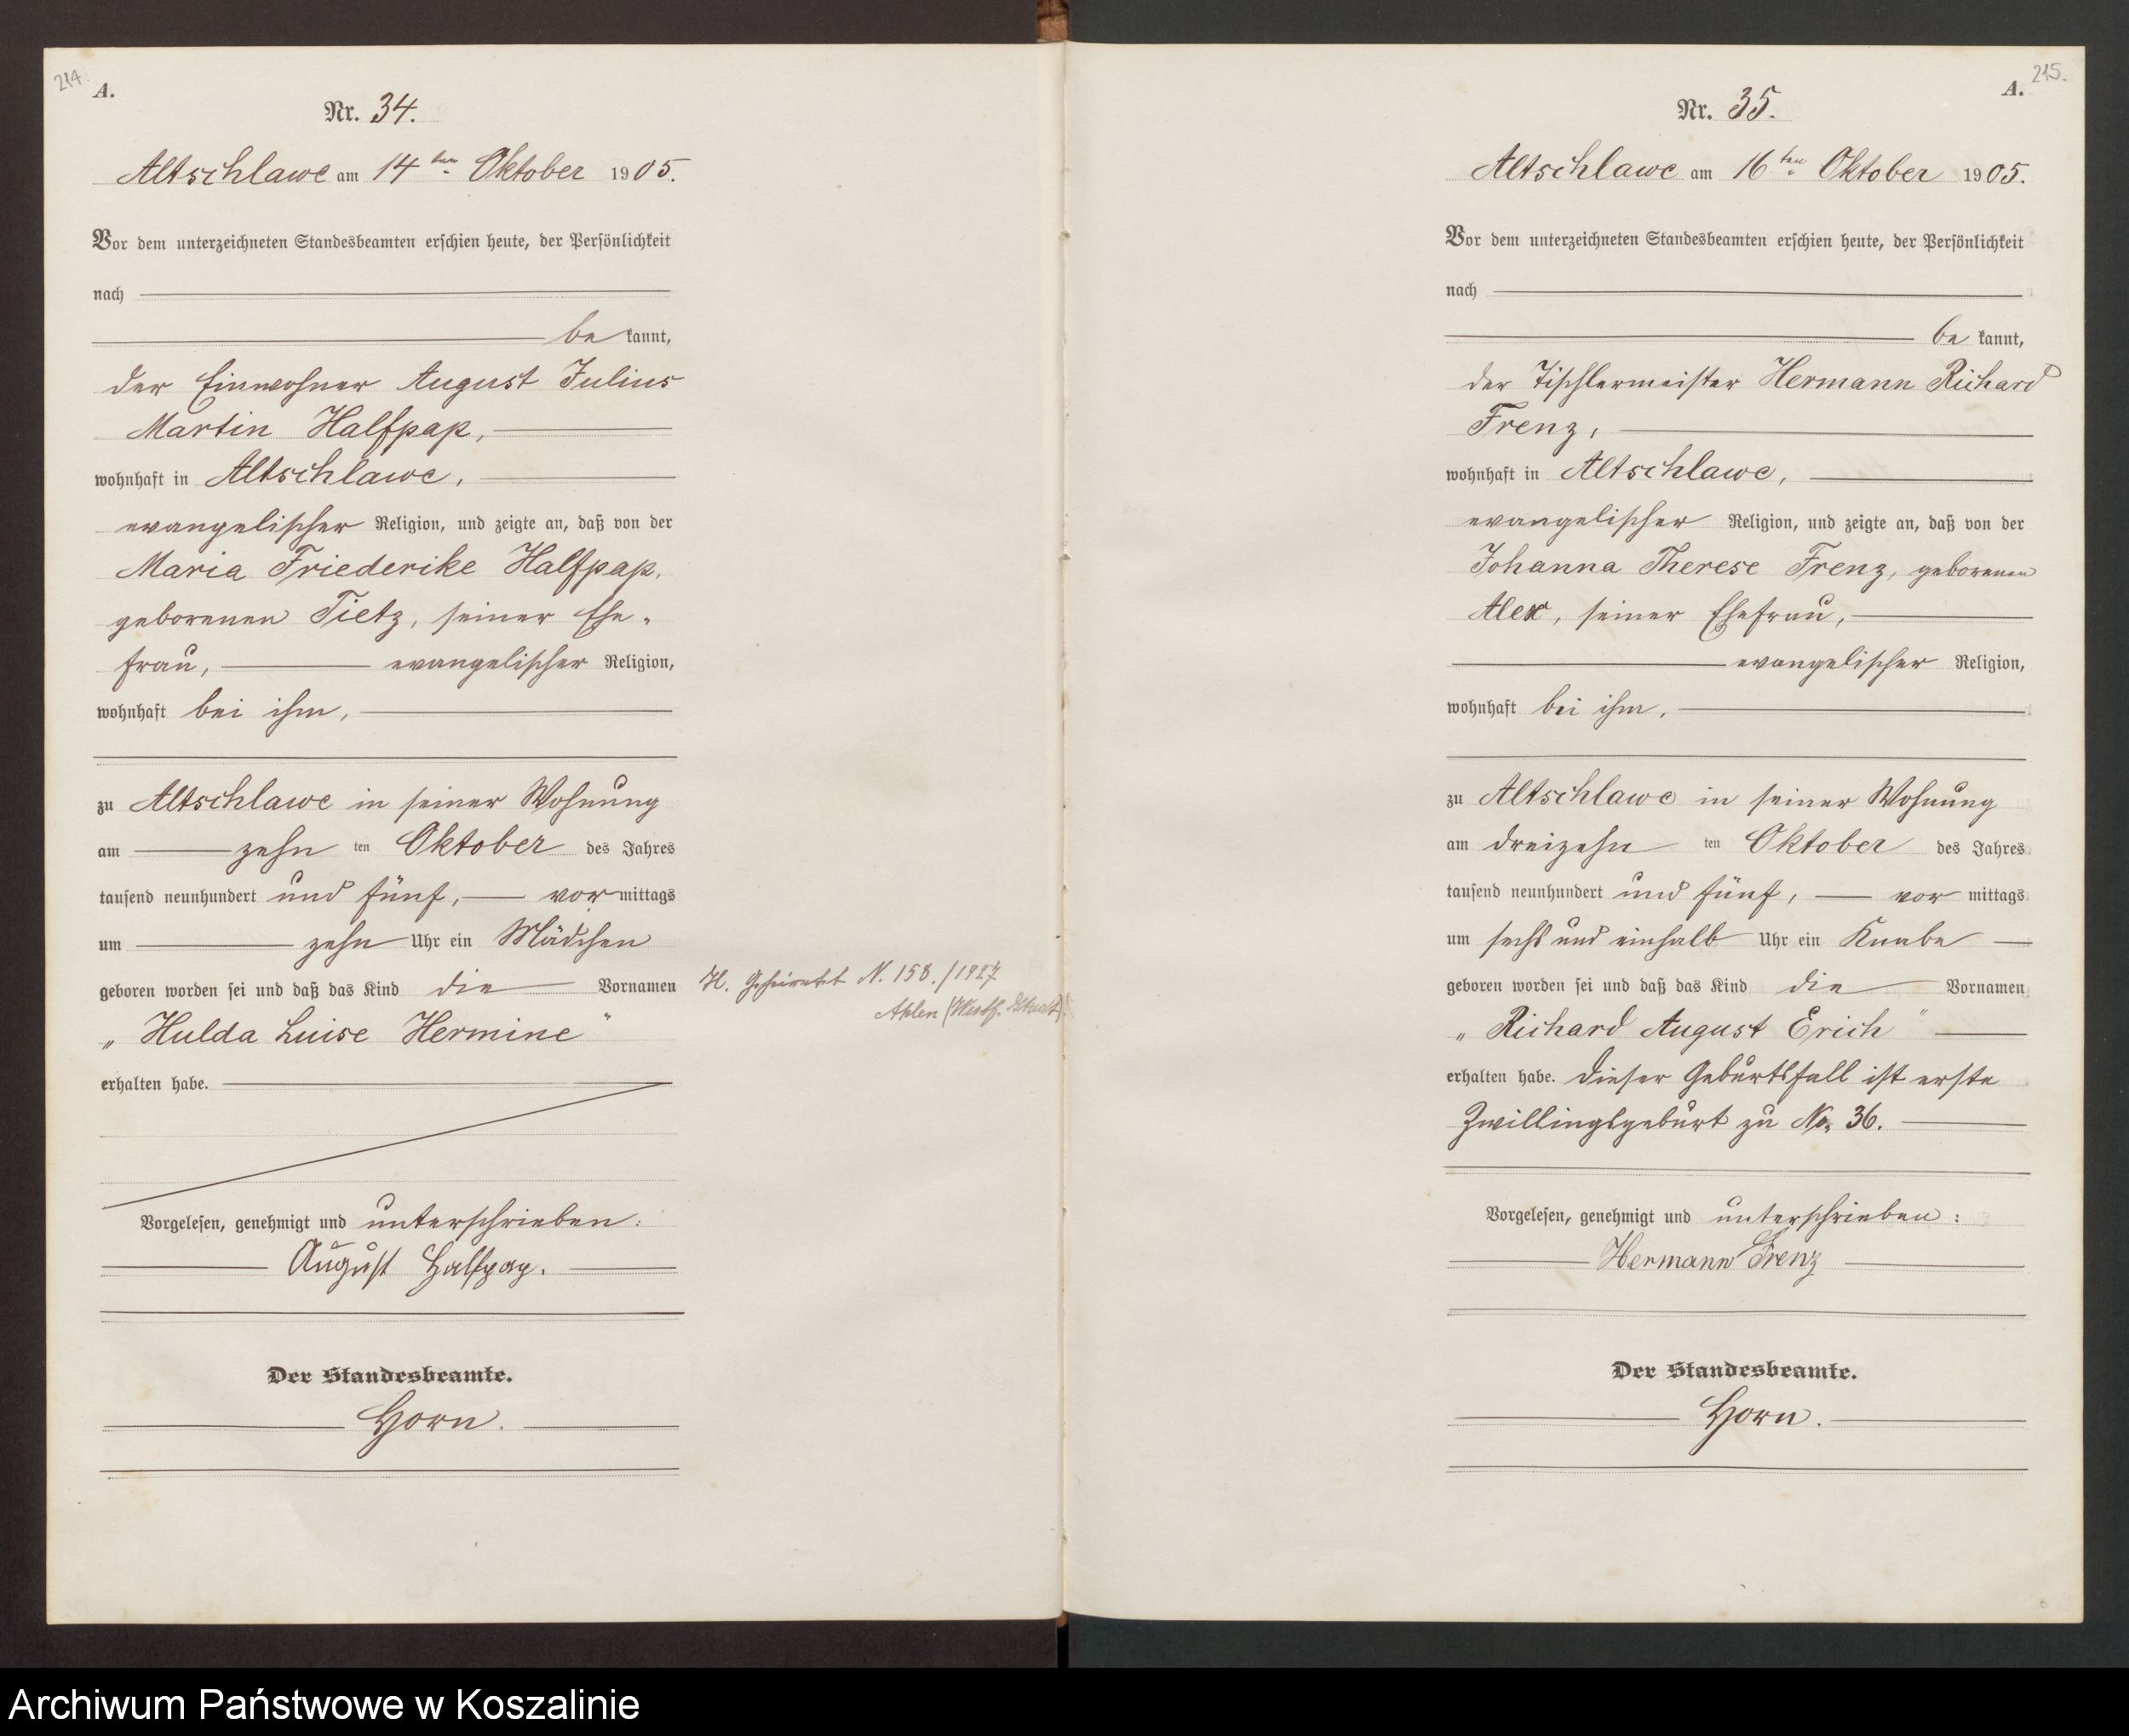 214.
A.
Nr. 34.
Altschlawe am 14ten Oktober 1905.
Vor dem unterzeichneten Standesbeamten erschien heute, der Persönlichkeit
nach
be kannt,
der Einwohner August Julius
Martin Halfpap,
wohnhaft in Altschlawe,
evangelischer Religion, und zeigte an, daß von der
Maria Friederike Halfpap,
geborenen Tietz, seiner Ehe-
frau, evangelischer Religion,
wohnhaft bei ihm,
zu Altschlawe in seiner Wohnung
am zehn ten Oktober des Jahres
tausend neunhundert und fünf, vor mittags
um zehn Uhr ein Mädchen
geboren worden sei und daß das Kind die Vornamen
„Hulda Luise Hermine"
erhalten habe.
H. Geheiratet N. 158./1927
Ahlen (Westf.
Vorgelesen, genehmigt und unterschrieben:
August Halfpap.
Der Standesbeamte.
Horn.
215.
A.
Nr. 35.
Altschlawe am 16ten Oktober 1905.
Vor dem unterzeichneten Standesbeamten erschien heute, der Persönlichkeit
nach
be kannt,
der Tischlermeister Hermann Richard
Frenz,
wohnhaft in Altschlawe,
evangelischer Religion, und zeigte an, daß von der
Johanna Therese Frenz, geborenen
Alex, seiner Ehefrau,
evangelischer Religion,
wohnhaft bei ihm,
zu Altschlawe in seiner Wohnung
am dreizehn ten Oktober des Jahres
tausend neunhundert und fünf, vor mittags
um sechs und einhalb Uhr ein Knabe
geboren worden sei und daß das Kind die Vornamen
„Richard August Erich"
erhalten habe. Dieser Geburtsfall ist erste
Zwillingsgeburt zu No. 36.
Vorgelesen, genehmigt und unterschrieben:
Hermann Frenz
Der Standesbeamte.
Horn.
Archiwum Państwowe w Koszalinie